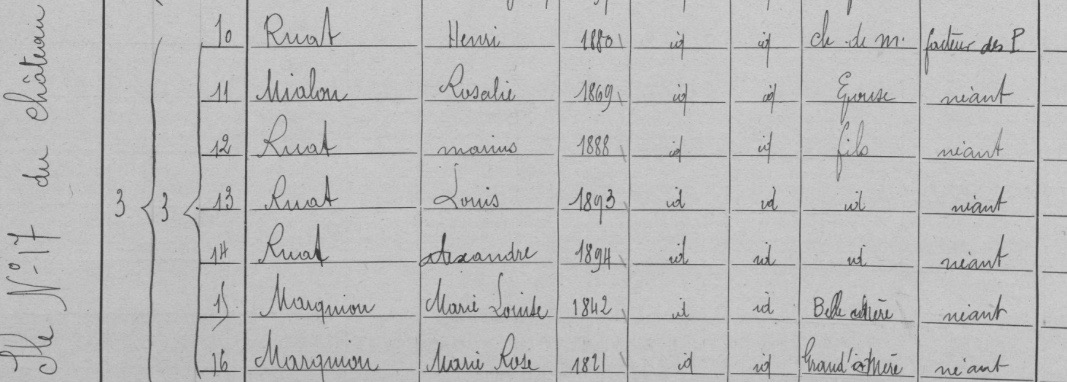 Ile N° 17 du château
3 3
10 Ruat Henri 1880 id id ch. de m. facteur des P.
11 Mialon Rosalie 1869 id id Epouse néant
12 Ruat marius 1888 id id fils néant
13 Ruat Louis 1893 id id id néant
14 Ruat alexandre 1894 id id id néant
15 Marquion Marie Louise 1842 id id Belle mère néant
16 Marquion Marie Rose 1821 id id Grand'mère néant